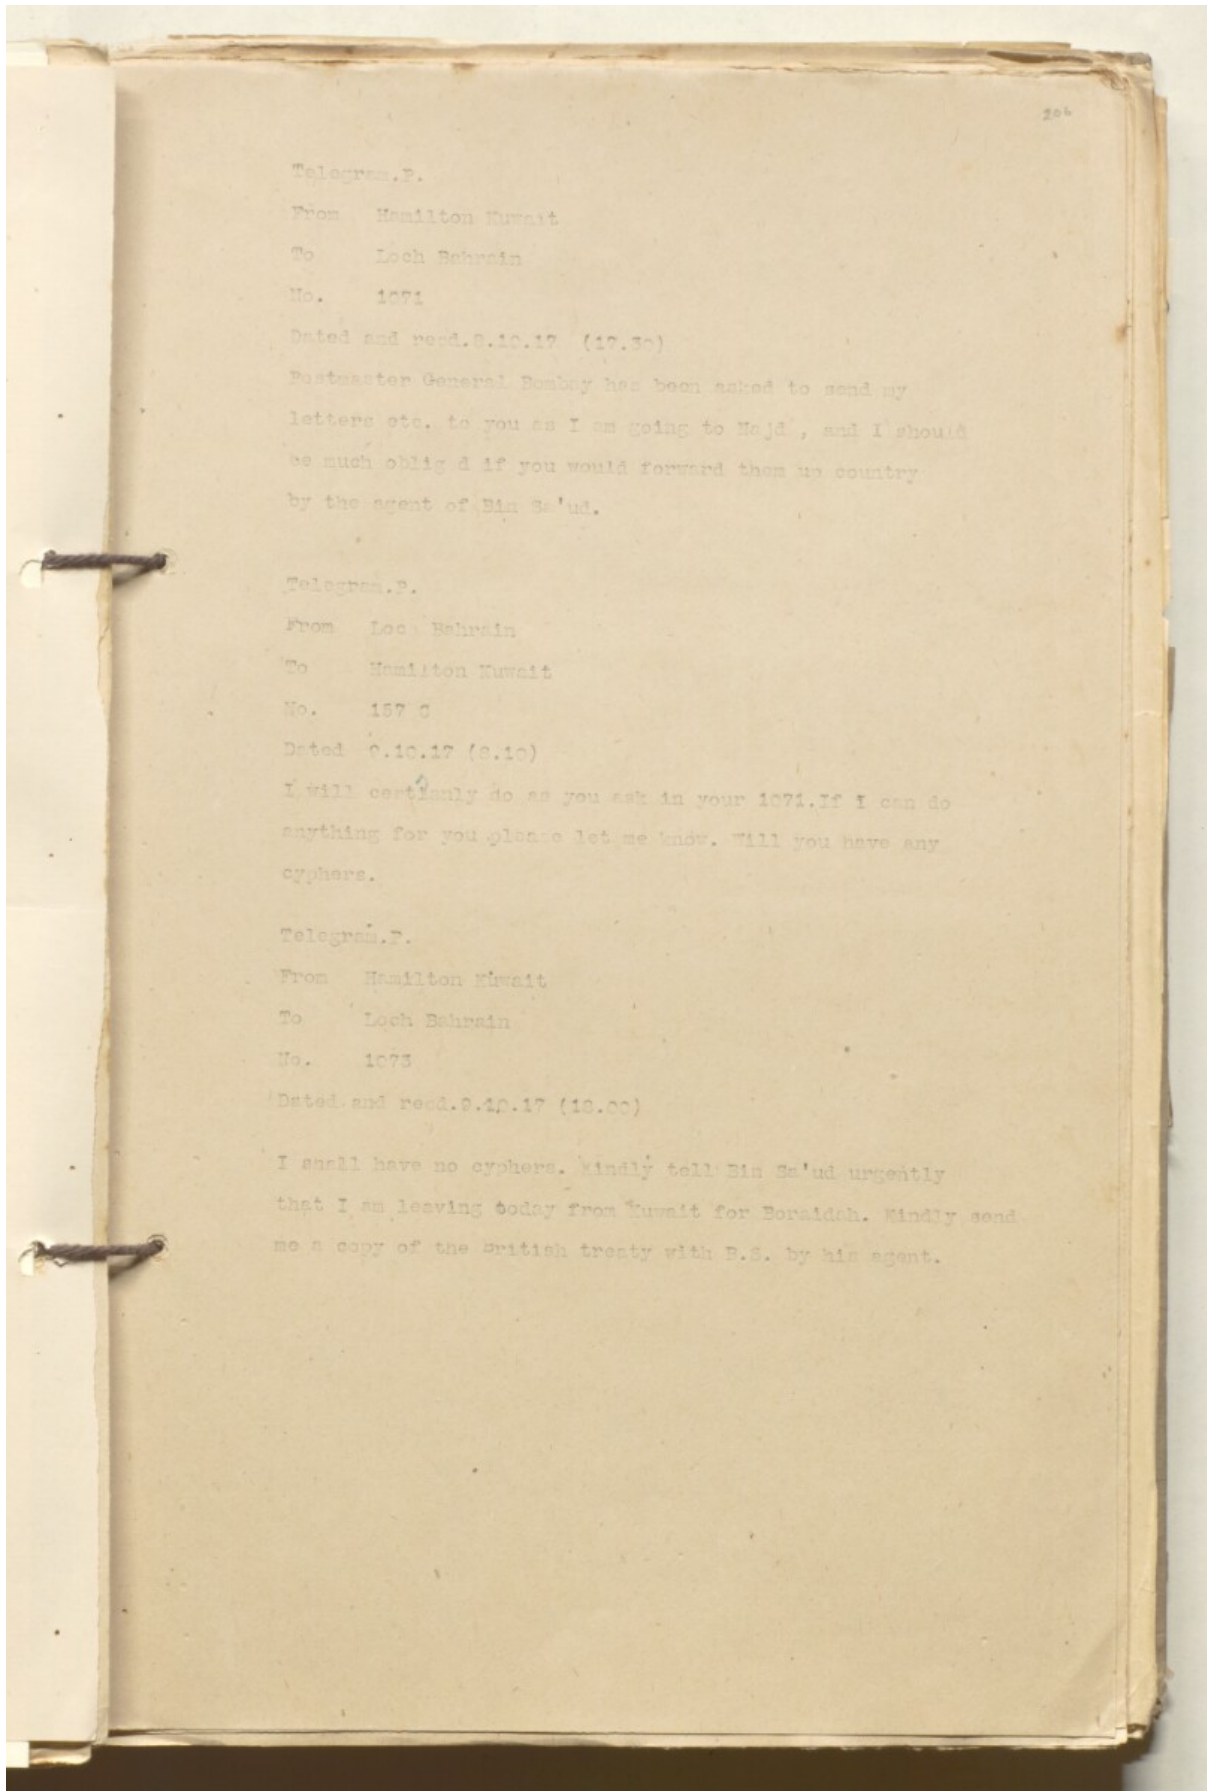 206
Telegram.P.
From Hamilton Kuwait
To Loch Bahrain
No. 1071
Dated and recd.8.10.17 (17.30)
Postmaster General Bombay has been asked to send my
letters etc. to you as I am going to Najd , and I should
be much oblig d if you would forward them up country
by the agent of Bin Sa'ud.
Telegram.P.
From Loc Bahrain
To Hamilton Kuwait
No. 157 C
Dated 9.10.17 (8.10)
I will certianly do as you ask in your 1071.If I can do
anything for you please let me know. Will you have any
cyphers.
Telegram.P.
From Hamilton Kuwait
To Loch Bahrain
No. 1073
Dated and recd.9.10.17 (18.00)
I shall have no cyphers. Kindly tell Bin Sa'ud urgently
that I am leaving today from Kuwait for Boraidah. Kindly send
me a copy of the british treaty with B.S. by his agent.